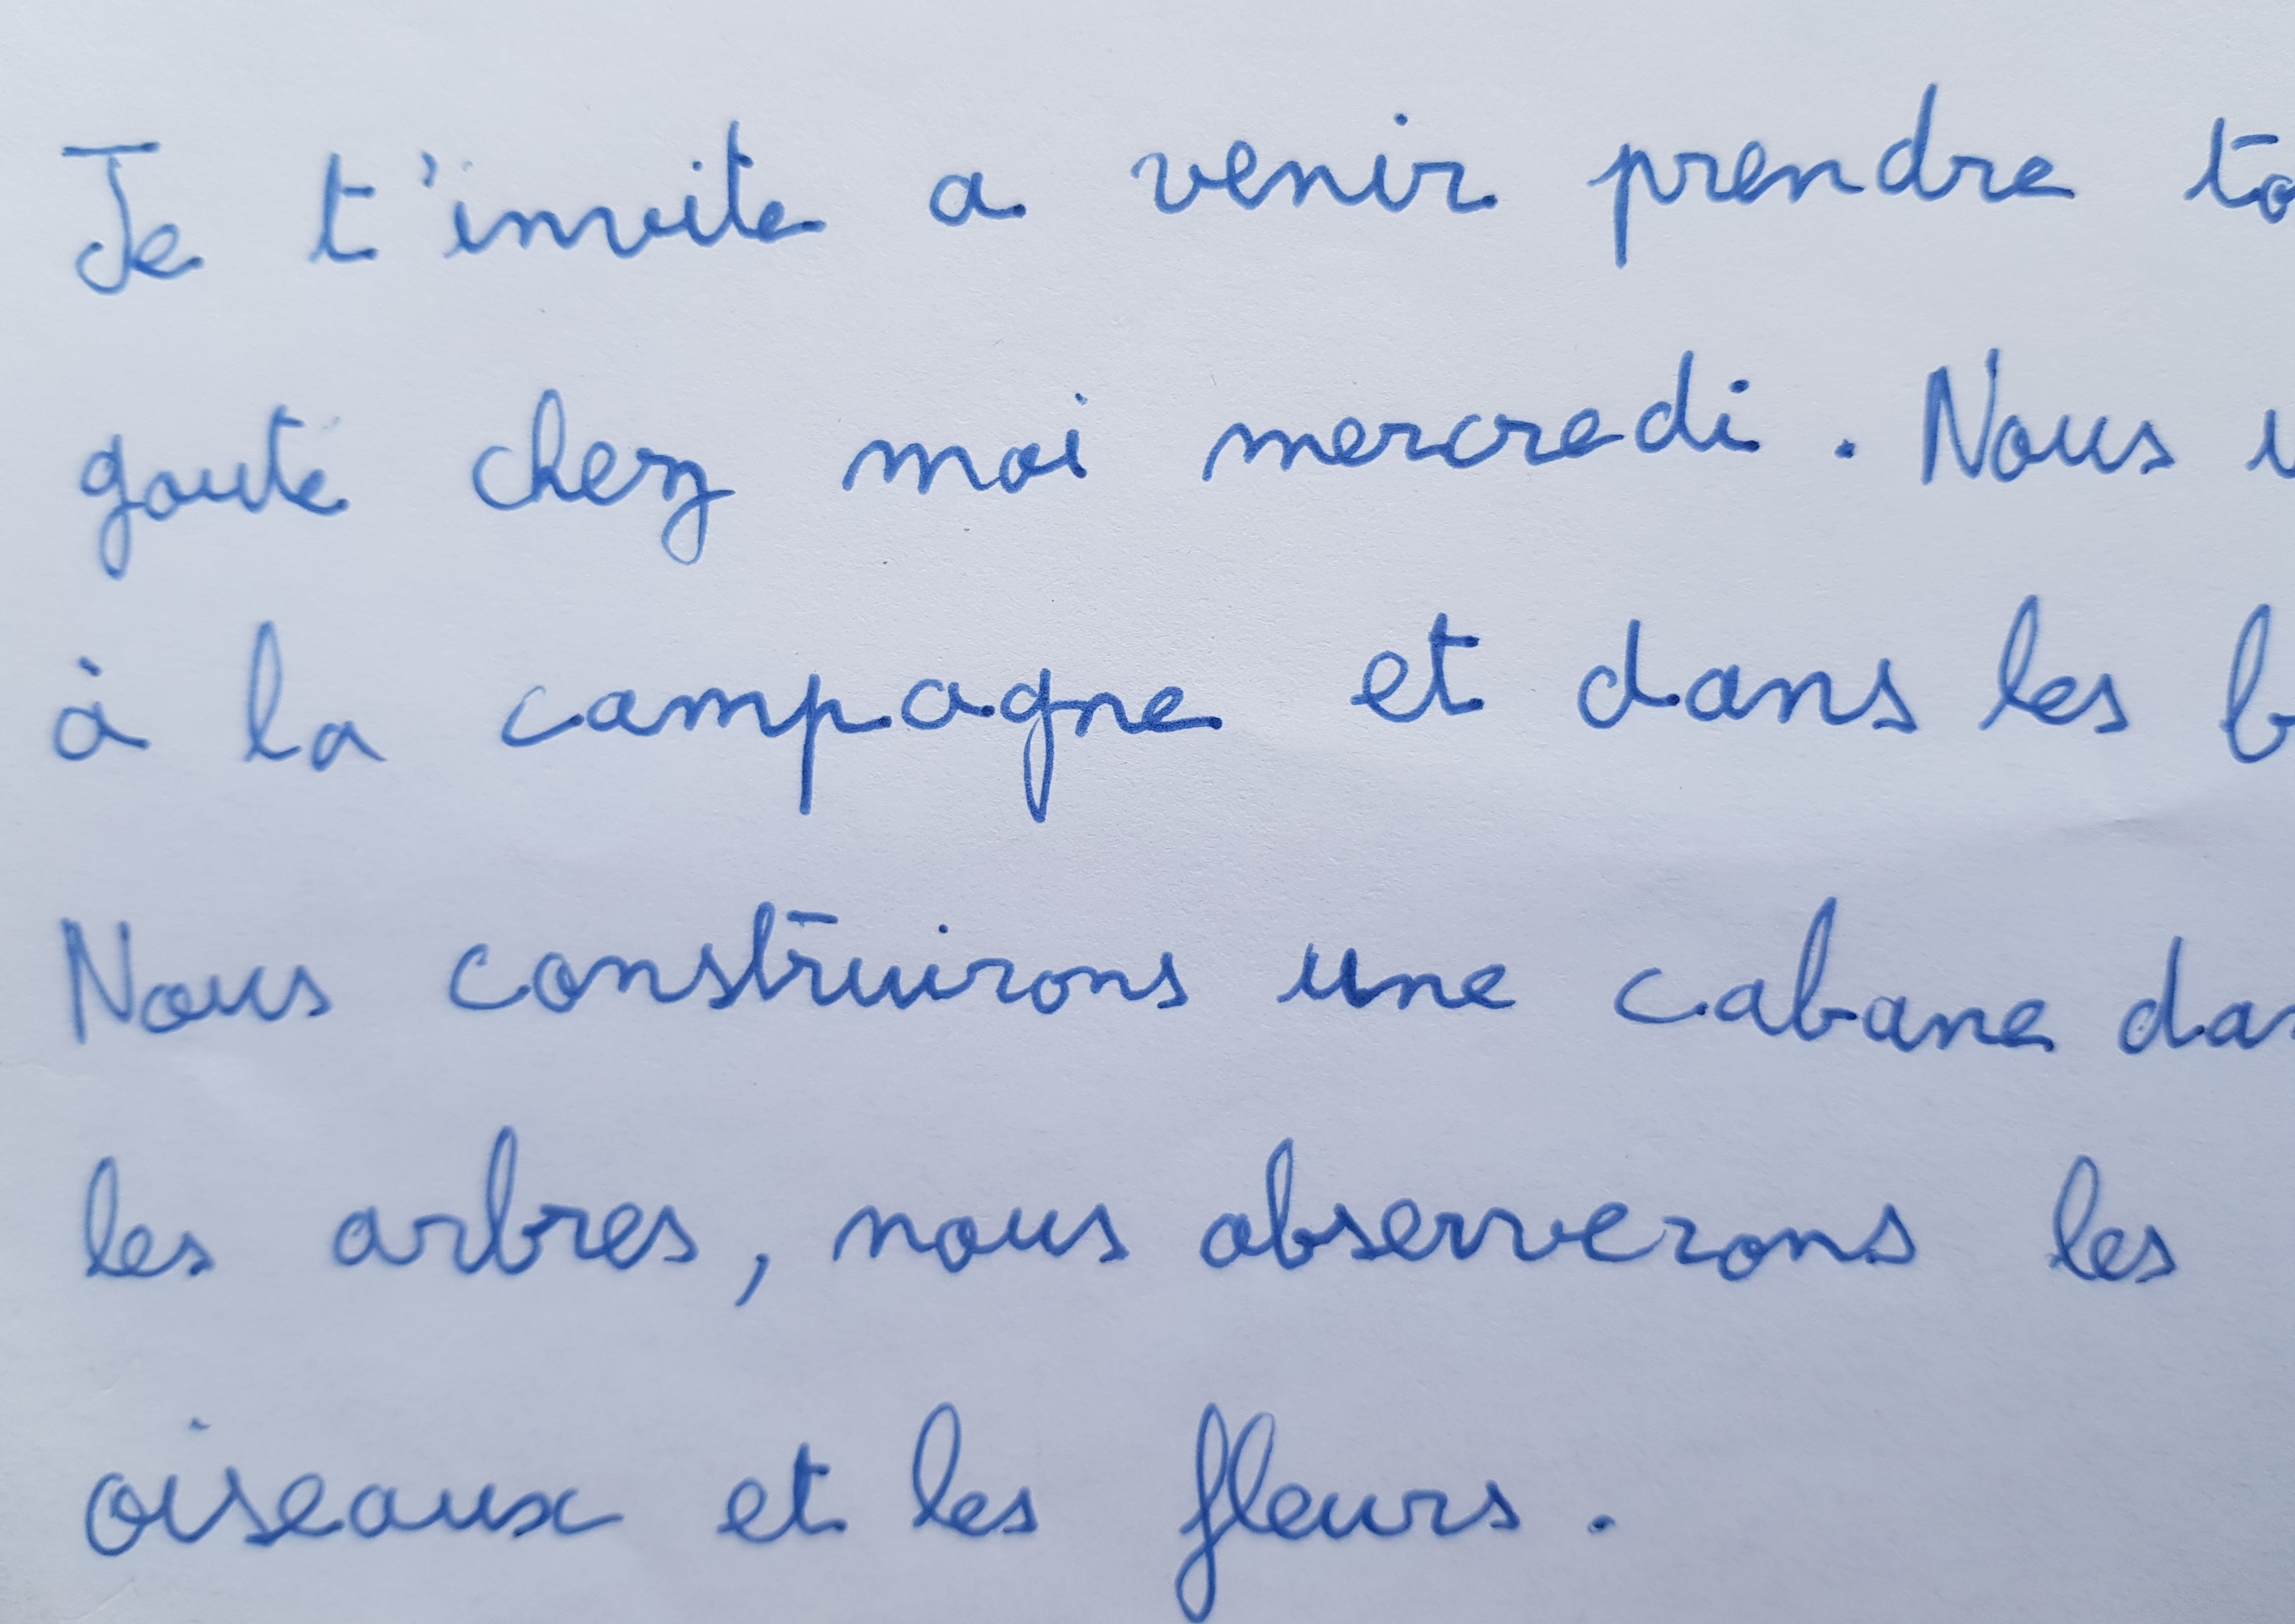 Je t'invite a venir prendre
gouté chez moi mercredi. Nous
à la campagne et dans les
Nous construirons une cabane
les arbres, nous observerons les
oiseaux et les fleurs.